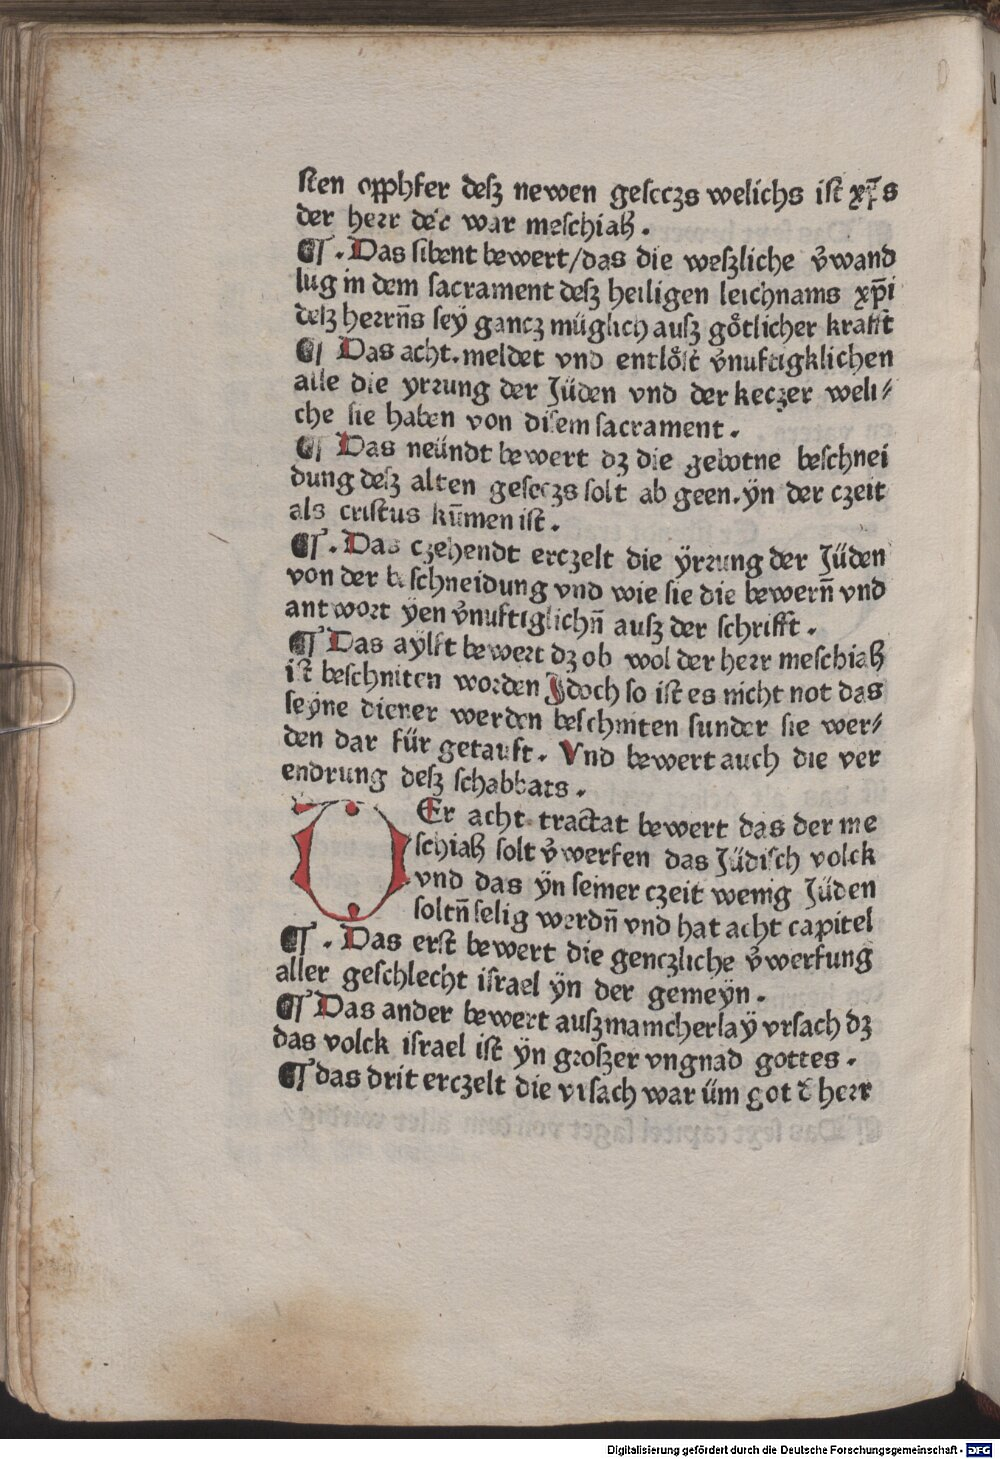 sten opphfer desz newen geseczs welichs ist xp̄s
der herr der war meschiaß .
¶ . Das sibent bewert/das die weszliche v̉wand
lug in dem sacrament desz heiligen leichnams xp̄i
desz herrn̄s seÿ gancz müglich ausz götlicher krafft
¶ Das acht . meldet vnd entlöst v̉nuftigklichen
alle die yrrung der Jüden vnd der keczer weli⸗
che sie haben von disem sacrament .
¶ Das neündt bewert dz die gebotne beschnei
dung desz alten geseczs solt ab geen . ÿn der czeit
als cristus kūmen ist .
¶ . Das czehendt erczelt die ÿrrung der Jüden
von der beschneidung vnd wie sie die bewern̄ vnd
antwort ÿen v̉nuftiglichn̄ ausz der schrifft .
¶ Das aylft bewert dz ob wol der herr meschiaß
ist beschniten worden Jdoch so ist es nicht not das
seÿne diener werden beschniten sunder sie wer⸗
den dar für getauft . Vnd bewert auch die ver
endrung desz schabbats .
DEr acht tractat bewert das der me
schiaß solt v̉werfen das Jüdisch volck
vnd das ÿn seiner czeit wenig Jüden
soltn̄ selig werdn̄ vnd hat acht capitel
¶ . Das erst bewert die genczliche v̉werfung
aller geschlecht israel ÿn der gemeÿn .
¶ Das ander bewert ausz mancherlaÿ vrsach dz
das volck israel ist ÿn groszer vngnad gottes .
¶ das drit erczelt die vrsach war üm got d̉ herr
Digitalisierung gefördert durch die Deutsche Forschungsgemeinschaft - DFG